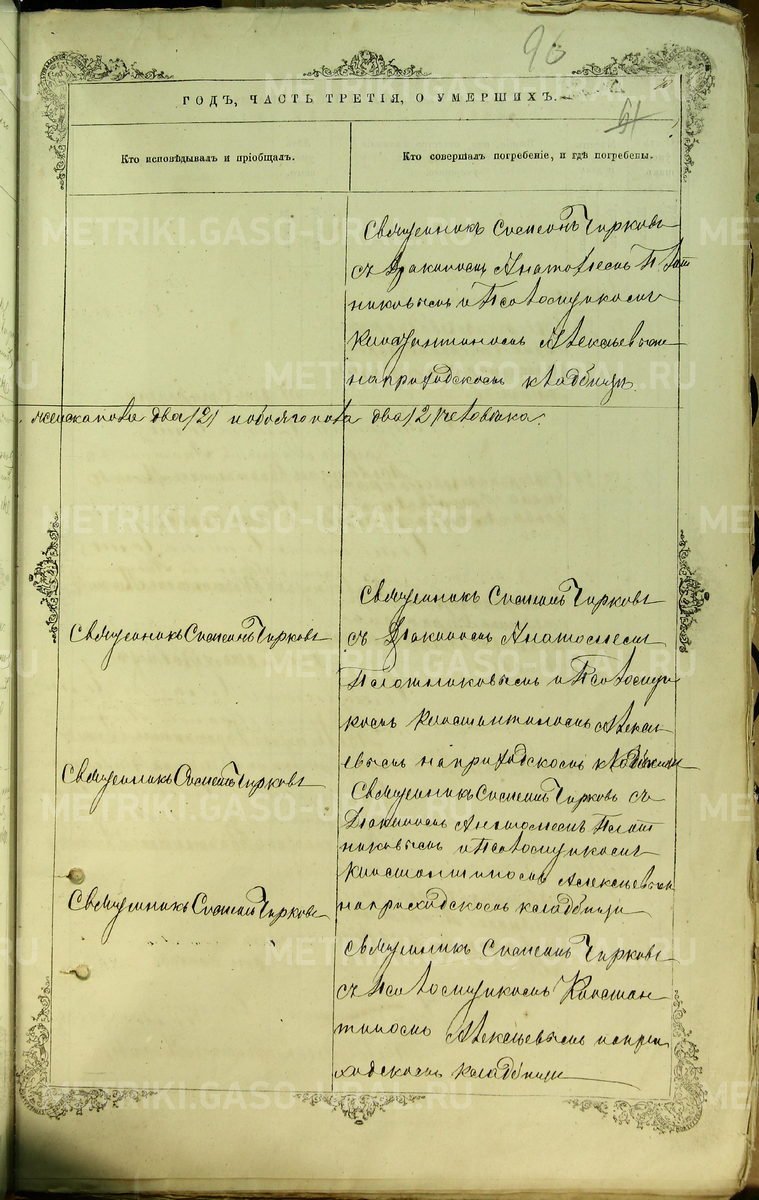 96
61
ГОДЪ, ЧАСТЬ ТРЕТІЯ, О УМЕРШИХЪ.
Кто исповѣдывалъ и пріобщалъ.
Кто совершалъ погребеніе, и гдѣ погребены.
Священникъ Симеонъ Чирковъ
съ Діакономъ Анатоліемъ Плот
никовымъ и Псаломщикомъ
Константиномъ Алексѣевымъ
на приходскомъ кладбищѣ.
женскаго пола два /2/ и обоего пола два /2/ человѣка.
Священникъ Симеонъ Чирковъ
Священникъ Симеонъ Чирковъ
съ Діакономъ Анатоліемъ
Плотниковымъ и Псаломщи
комъ Константиномъ Алексѣ
евымъ на приходскомъ кладбищѣ
Священникъ Симеонъ Чирковъ
Священникъ Симеонъ Чирковъ съ
Діакономъ Анатоліемъ Плот
никовымъ и Псаломщикомъ
Константиномъ Алексѣевымъ
на приходскомъ кладбищѣ
Священникъ Симеонъ Чирковъ
Священникъ Симеонъ Чирковъ
съ Псаломщикомъ Констан
тиномъ Алексѣевымъ на при
ходскомъ кладбищѣ
METRIKI.GASO-URAL.RU